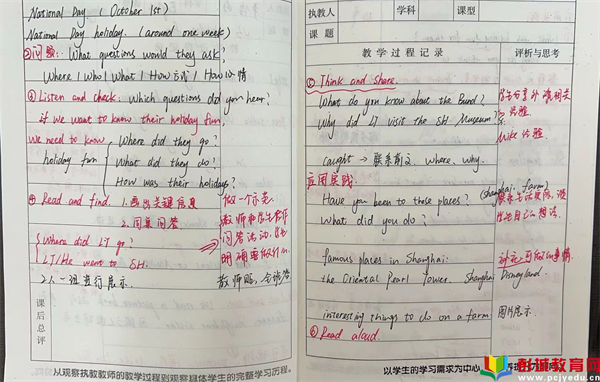 National Day (October 1st)
National Day holiday. (around one week)
②问题: What questions would they ask?
Where | Who | What | How 方式 | How 心情
③ Listen and check: Which questions did you hear?
if we want to know their holiday fun,
we need to know
Where did they go?
holiday fun
What did they do?
How was their holidays?
④ Read and find. 1.画出关键信息
2.同桌问答
做一个示范
教师和学生合作
问答活动,
明确要做什么
Where did LJ go?
LJ/He went to SH.
2人一组进行展示.
课后总评
以观察执教教师的教学过程到观察具体学生的完整学习历程。
执教人
学科
课型
课题
教学过程记录
评析与思考
⑤ Think and share.
What do you know about the Bund?
Why did LJ visit the SH Museum?
caught → 联系前文, where, why.
应用实践:
(shanghai, farm)
Have you been to these places?
What did you do?
famous places in Shanghai:
the Oriental Pearl Tower, Shanghai Disneyland.
interesting things to do on a farm
图片展示.
⑥ Read aloud.
以学生的学习需求为中心
创诚教育网
www.pcjyedu.cn